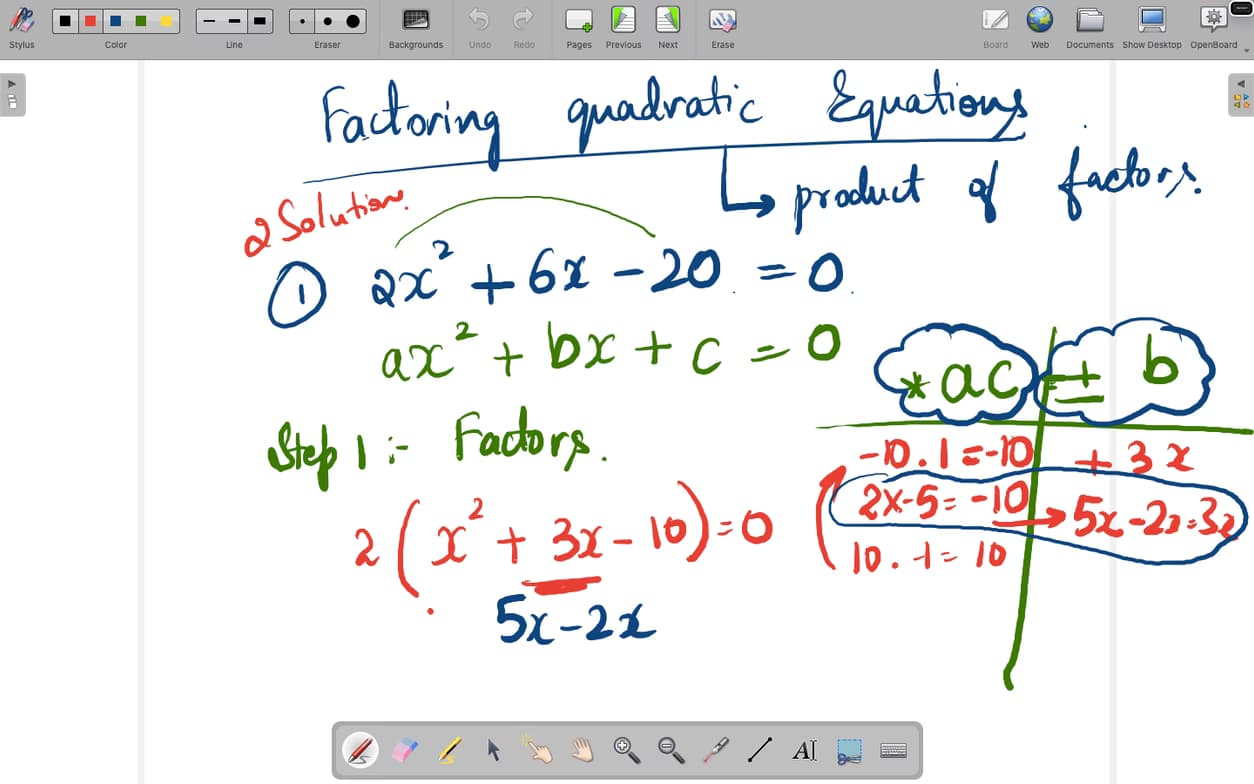 Stylus Color Line Eraser Backgrounds Undo Redo Pages Previous Next Erase Board Web Documents Show Desktop OpenBoard
Factoring quadratic Equations
↳ product of factors.
2 Solutions.
① 2x² + 6x - 20 = 0
ax² + bx + c = 0
* ac ± b
Step 1 :- Factors.
-10 . 1 = -10 + 3x
2x-5 = -10 → 5x - 2x = 3x
10 . -1 = 10
2 ( x² + 3x - 10 ) = 0
5x - 2x